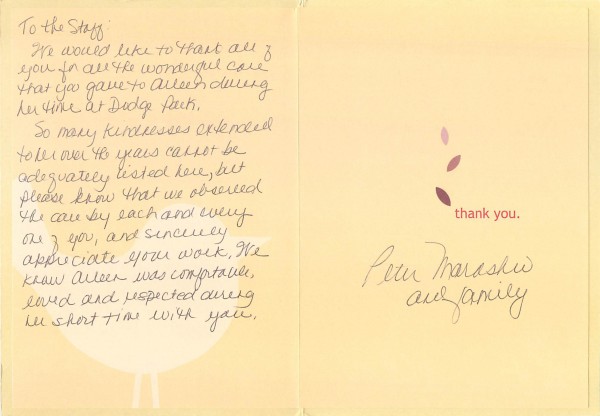 To the Staff:
We would like to thank all of
you for all the wonderful care
that you gave to Arleen during
her time at Dodge Park.
So many kindnesses extended
to her over the years cannot be
adequately listed here, but
please know that we observed
the care by each and every
one of you, and sincerely
appreciate your work. We
know Arleen was comfortable,
loved and respected during
her short time with you.
thank you.
Peter
and family